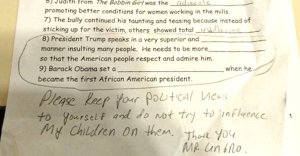 6) Judith from The Bobbin Girl was the advocate
promoting better conditions for women working in the mills
7) The bully continued his taunting and teasing because instead of
sticking up for the victim, others showed total indifference
8) President Trump speaks in a very superior and
manner insulting many people. He needs to be more
so that the American people respect and admire him.
9) Barack Obama set a when he
became the first African American president.
Please keep your political views
to yourself and do not try to influence
My children on them. Thank you
MR.